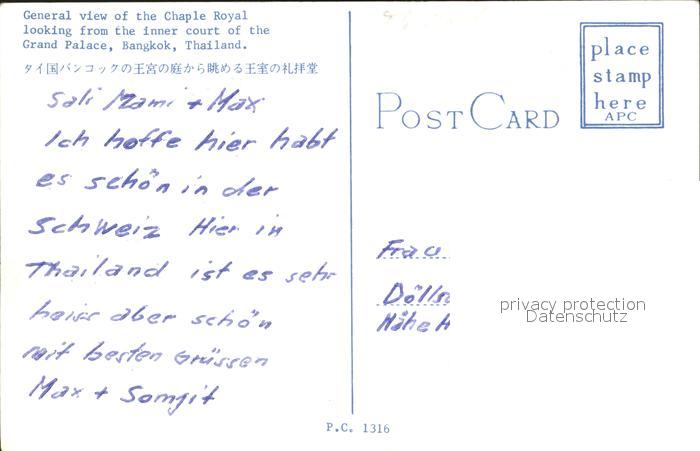 General view of the Chaple Royal
looking from the inner court of the
Grand Palace, Bangkok, Thailand.
タイ国バンコックの王宮の庭から眺める王室の礼拝堂
Sali Mami + Max
Ich hoffe hier habt
es schön in der
Schweiz Hier in
Thailand ist es sehr
heiss aber schön
mit besten Grüssen
Max + Somjit
POSTCARD
place
stamp
here
APC
Frau
Dölls
Nähe H
privacy protection
Datenschutz
P.C. 1316